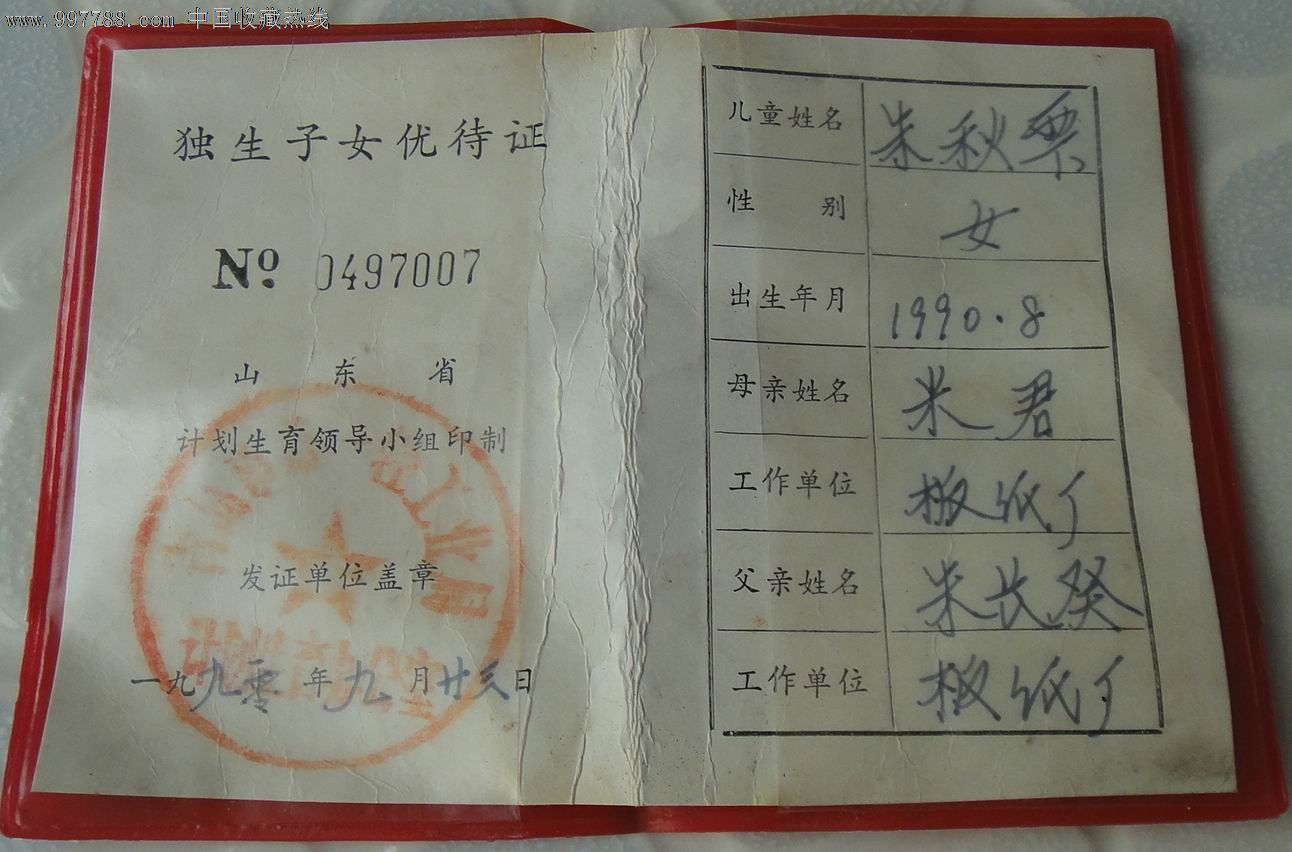 www.997788.com 中国收藏热线
独生子女优待证
№ 0497007
山东省
计划生育领导小组印制
发证单位盖章
一九九零年九月廿三日
儿童姓名 朱秋栗
性别 女
出生年月 1990.8
母亲姓名 米君
工作单位 板纸厂
父亲姓名 朱长癸
工作单位 板纸厂